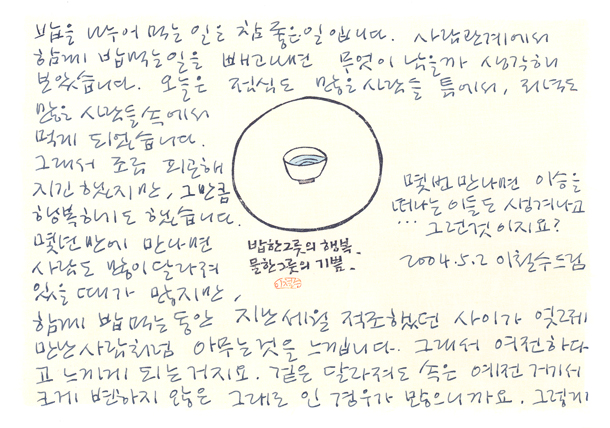 밥을 나누어 먹는 일은 참 좋은일입니다. 사람관계에서
함께 밥먹는일을 빼고나면 무엇이 남을까 생각해
보았습니다. 오늘은 점심도 많은 사람들 틈에서, 저녁도
많은 사람들속에서
먹게 되었습니다.
그래서 조금 피곤해
지긴 했지만, 그만큼
행복하기도 했습니다.
몇년만에 만나면
사람도 많이 달라져
있을 때가 많지만,
밥한그릇의 행복.
물한그릇의 기쁨.
몇번 만나면 이승을
떠나는 이들도 생겨나고
… 그런것이지요?
2004.5.2 이철수드림
함께 밥먹는동안 지난세월 적조했던 사이가 엊그제
만난사람처럼 아무는것을 느낍니다. 그래서 여전하다
고 느끼게 되는거지요. 겉은 달라져도 속은 예전 거기서
크게 변하지 않은 그대로 인 경우가 많으니까요. 그렇게